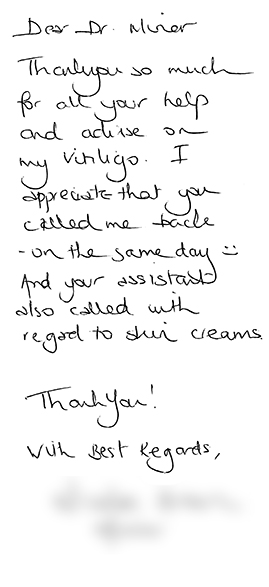 Dear Dr. Minier
Thankyou so much
for all your help
and advise on
my vitiligo. I
appreciate that you
called me back
- on the same day :)
And your assistant
also called with
regard to skin creams.
ThankYou!
With Best Regards,